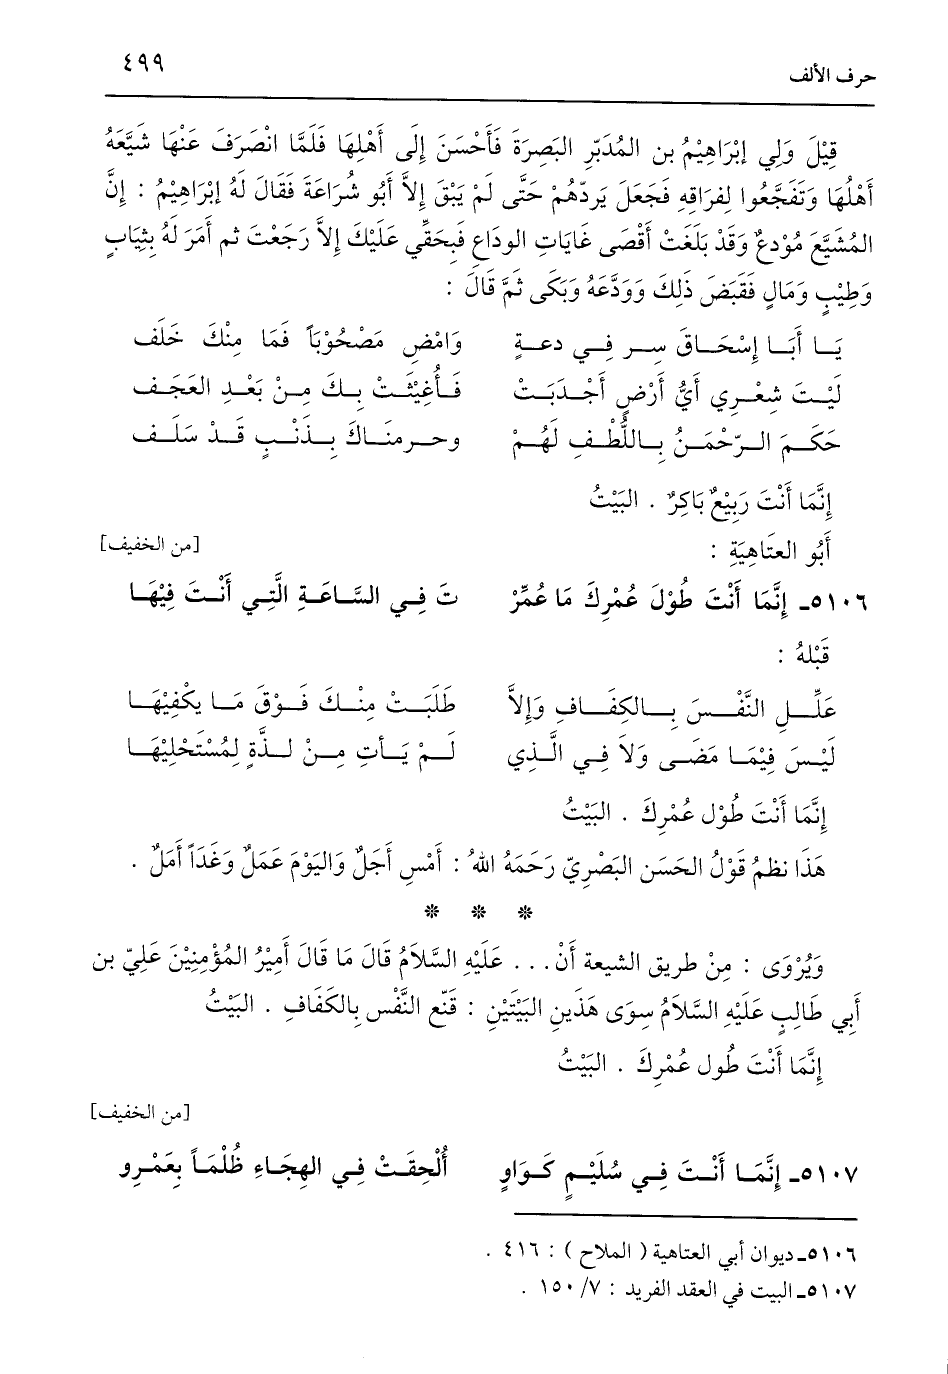 حرف الألف ٤٩٩
قِيْلَ وَلِي إِبْرَاهِيْمُ بن المُدَبّرِ البَصِرَةَ فَأَحْسَنَ إِلَى أَهْلِهَا فَلَمَّا انْصَرَفَ عَنْهَا شَيَّعَهُ
أَهْلُهَا وَتَفَجَّعُوا لِفرَاقِهِ فَجَعَلَ يَردّهُمْ حَتَّى لَمْ يَبْقَ إِلاَّ أَبُو شُرَاعَةَ فَقَالَ لَهُ إِبْرَاهِيْمُ : إِنَّ
المُشَيَّعَ مُوْدعٌ وَقَدْ بَلَغَتْ أَقْصَى غَايَاتِ الودَاعِ فَبِحَقِّي عَلَيْكَ إِلاَّ رَجَعْتَ ثم أَمَرَ لَهُ بِثِيَابٍ
وَطِيْبٍ وَمَالٍ فَقَبَضَ ذَلِكَ وَوَدَّعَهُ وَبَكَى ثُمَّ قَالَ :
يَـا أَبَـا إِسْحَـاقَ سِـر فِـي دعـةٍ وَامْضِ مَصْحُوْبَاً فَمَا مِنْكَ خَلَف
لَيْـتَ شِعْـرِي أَيُّ أَرْضٍ أَجْـدَبَـتْ فَـأُغِيْثَـتْ بِـكَ مِـنْ بَعْـدِ العَجَـف
حَكَـمَ الـرّحْمَـنُ بِـاللُّطْـفِ لَهُـمْ وحـرمنَـاكَ بِـذَنْـبٍ قَـدْ سَلَـف
إِنَّمَا أَنْتَ رَبِيْعٌ بَاكِرٌ . البَيْتُ
أَبُو العتَاهِيَةِ : [من الخفيف]
٥١٠٦ـ إِنَّمَا أَنْتَ طُوْلَ عُمْرِكَ مَا عُمِّرْ تَ فِـي السَّـاعَـةِ الَّتِـي أَنْـتَ فِيْهَـا
قَبْلهُ :
عَلِّـلِ النَّفْـسَ بِـالكِفَـافِ وَإِلاَّ طَلَبَـتْ مِنْـكَ فَـوْقَ مَـا يكْفِيْهَـا
لَيْـسَ فِيْمَـا مَضَـى وَلاَ فِـي الَّـذِي لَـمْ يَـأتِ مِـنْ لـذَّةٍ لِمُسْتَحْلِيْهَـا
إِنَّمَا أَنْتَ طُوْل عُمْرِكَ . البَيْتُ
هَذَا نظمُ قَوْلُ الحَسَن البَصْرِيّ رَحَمَهُ اللهُ : أَمْسِ أَجَلٌ وَاليَوْمَ عَمَلٌ وَغَدَاً أَمَلٌ .
* * *
وَيُرْوَى : مِنْ طريق الشيعة أَنْ ... عَلَيْهِ السَّلاَمُ قَالَ مَا قَالَ أَمِيْرُ المُؤْمِنِيْنَ عَلِيّ بن
أَبِي طَالِبٍ عَلَيْهِ السَّلاَمُ سِوَى هَذَينِ البَيْتَيْنِ : قَنّع النَّفْس بِالكَفَافِ . البَيْتُ
إِنَّمَا أَنْتَ طُول عُمْرِكَ . البَيْتُ
[من الخفيف]
٥١٠٧ـ إِنَّمَـا أَنْـتَ فِـي سُلَيْـمٍ كَـوَاوٍ أُلْحِقَـتْ فِـي الهِجَـاءِ ظُلْمَـاً بِعَمْـرِو
٥١٠٦ـ ديوان أبي العتاهية ( الملاح ) : ٤١٦ .
٥١٠٧ـ البيت في العقد الفريد : ٧/ ١٥٠ .